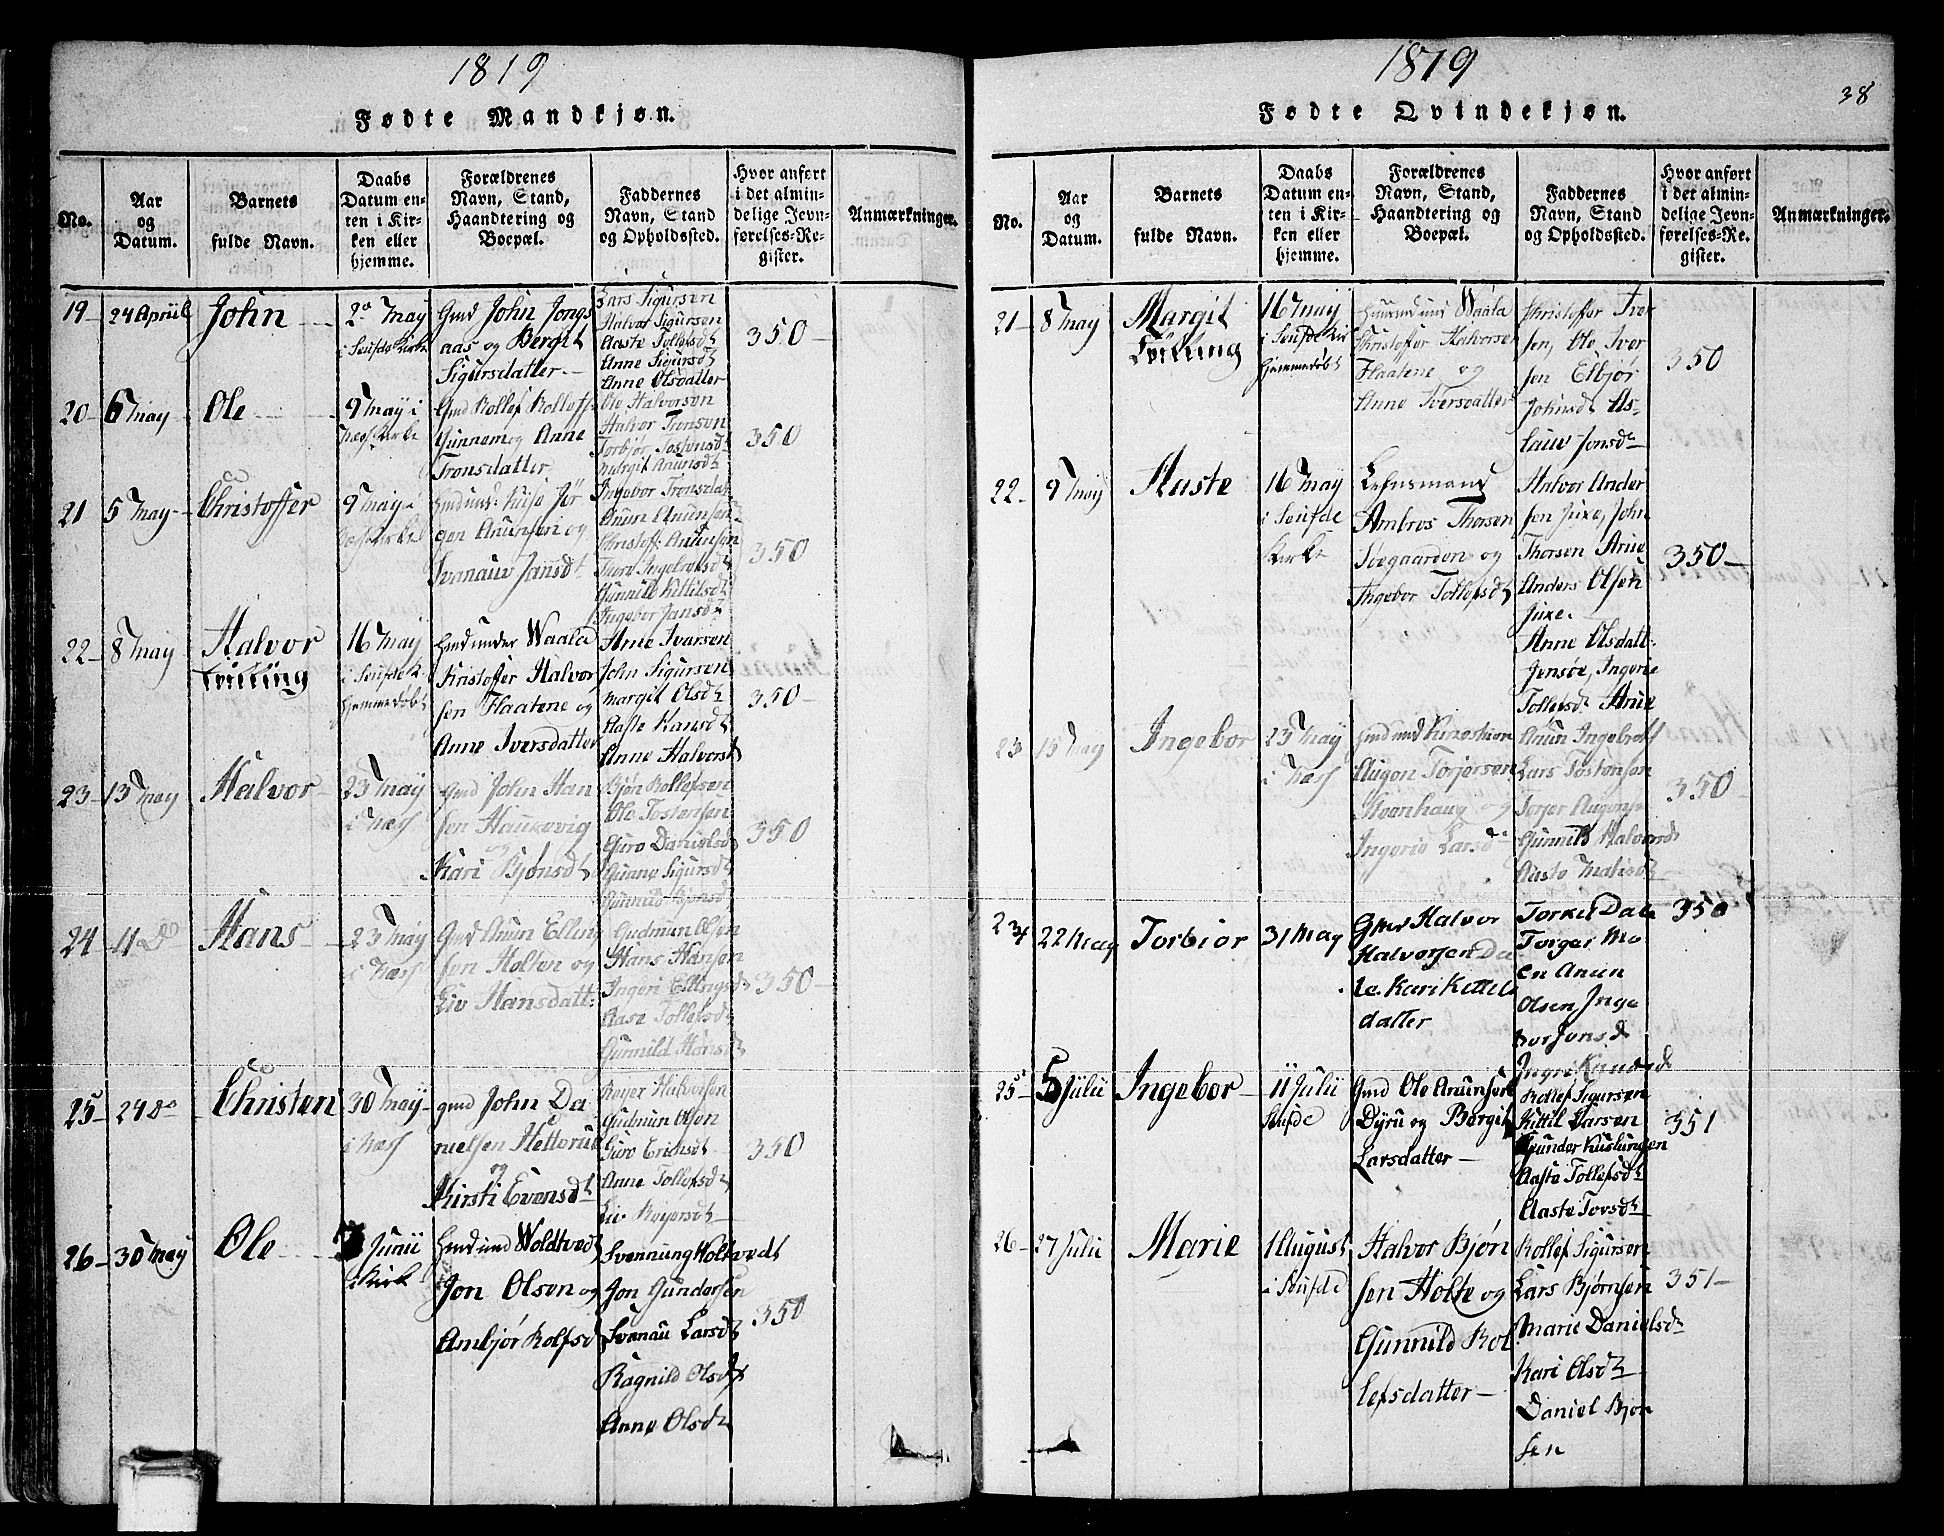 1819
Fødte Mandkjøn.
No.
Aar
og
Datum.
Barnets
fulde Navn.
Daabs
Datum en-
ten i Kir-
ken eller
hjemme.
Forældrenes
Navn, Stand,
Haandtering og
Boepæl.
Faddernes
Navn, Stand
og Opholdssted.
Hvor anført
i det almin-
delige Jevn-
førelses-Re-
gister.
Anmærkninger.
19
24 Apriil
John
2 May
i Seufde Kirke
Gmd John Jongs
aas og Bergit
Sigursdatter
Lars Sigursen
Halvor Sigursen
Aaste Tollefsdt
Anne Sigursdt
Anne Olsdatter
350
20
6 May
Ole
9 May i
Næss Kirke
Gmd Rollef Rollefs
Gunnem og Anne
Tronsdatter
Ole Halvorsen
Halvor Tronsen
Torbjør Tostensdt
Margit Anunsdt
Ingebor Tronsdat
350
21
5 May
Christoffer
9 May i
Næss Kirke
Jør
gen Anunsen og
Svanauv Jansdt
Anun Anunsen
Christoff. Anunsen
Thore Ingebretsdt
Gunnild Kittilsdt
Ingebor Jansdt
350
22
8 May
Halvor
Tvilling
16 May
i Seufde K.
Hjemmedøbt
Hmd under Waala
Kristoffer Halvor
sen Flaatene og
Anne Iversdatter
Arne Ivarsen
John Sigursen
Margit Olsdt
Aaste Hansdt
Anne Halvorsdt
350
23
13 May
Halvor
23 May
i Næss
Gmd John Han
sen Haukovig
og
Kari Bjønsdt
Bjøn Rollefsen
Ole Tostensen
Guro Danielsdt
Gunne Sigursdt
Gunnild Bjønsdt
350
24
11 Do
Hans
23 May
i Næss
Gmd Anun Elling
sen Holten og
Liv Hansdatt:
Gudmun Olsen
Hans Hansen
Ingeri Ellingsdt
Aase Tollefsdt
Gunnild Hansdt
350
25
24 do
Christen
30 May
i Næss
Gmd John Da
nielsen Hetterud
og
Kirsti Evensdt
Røyer Halvorsen
Gudmun Olsen
Guro Ericsdt
Anne Tollefsdt
Liv Røyersdt
350
26
30 May
Ole
7 Junii
i Kirk
Hmd und Woldtvedt
Jon Olsen og
Ambjør Rolfsd
Svennung Holtvedt
Jon Gundersen
Svanau Larsdt
Ragnild Olsdt
Anne Olsdt
350
1819
38
Fødte Qvindekjøn.
No.
Aar
og
Datum.
Barnets
fulde Navn.
Daabs
Datum en-
ten i Kir-
ken eller
hjemme.
Forældrenes
Navn, Stand,
Haandtering og
Boepæl.
Faddernes
Navn, Stand
og Opholdssted.
Hvor anført
i det almin-
delige Jevn-
førelses-Re-
gister.
Anmærkninger.
21
8 May
Margit
Tvilling
16 May
i Seufde Kir
Hjemmedøbt
Huusmd und Waala
Christoffer Halvorsen
Flaatene og
Anne Iversdatter
Christoffer Iver
sen, Ole Iver
sen Elbjør
Johnsdt As-
lauv Jonsdt
350
22
9 May
Aaste
16 May
i Seufde
Kirke
Lehnsmand
Ambros Thorsen
Søegaarden og
Ingebor Tollefsdt
Halvor Ander
sen Juxe, John
Thorsen Arne
Anders Olsen
Juxe.
Anne Olsdatt:
Jensøe, Ingerie
Tollefsdt Arne
350
23
15 May
Ingebor
23 May
i Næss
Augon Torjersen
Moenhaug og
Ingerid Larsdt
Anun Ingebrets
Lars Tostensen
Torjer Augons
Gunnild Halvorsdt
Aaste
350
24
22 May
Torbiør
31 May
Gmd Halvor
Halvorsen Da
le. Kari Kettels
datter
Torkel Dale
Torger Mo
en Anun
Olsen, Inge
bor Jonsd
Ingri Knudsd
350
25
5 Julii
Ingebor
11 Julii
Seufde
Gmd Ole Anunsen
Dyru og Bergit
Larsdatter
Rollef Sigursen
Kittil Larsen
Gunder Kuslungen
Aaste Tollefsdt
Aaste Tovsdt
351
26
27 Julii
Marie
1 August
i Seufde
Halvor Bjøn
sen Holte og
Gunnild Rol
lefsdatter
Rollef Sigursen
Lars Bjørnsen
Marie Danielsdt
Kari Olsdt
Daniel Bjøn
sen
351